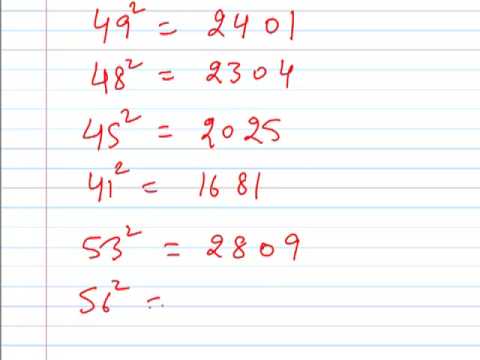 49² = 2401
48² = 2304
45² = 2025
41² = 1681
53² = 2809
56² =